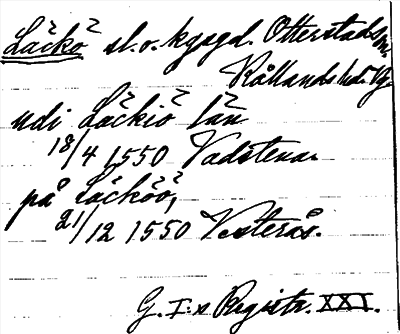 Läckö sl. o. kgsgd. Otterstads sn.
Kållands hd. Vg.
udi Läckiö län
18/4 1550 Vadstena.
på Läcköö,
21/12 1550 Vesterås.
G. I:s Registr. XXI.